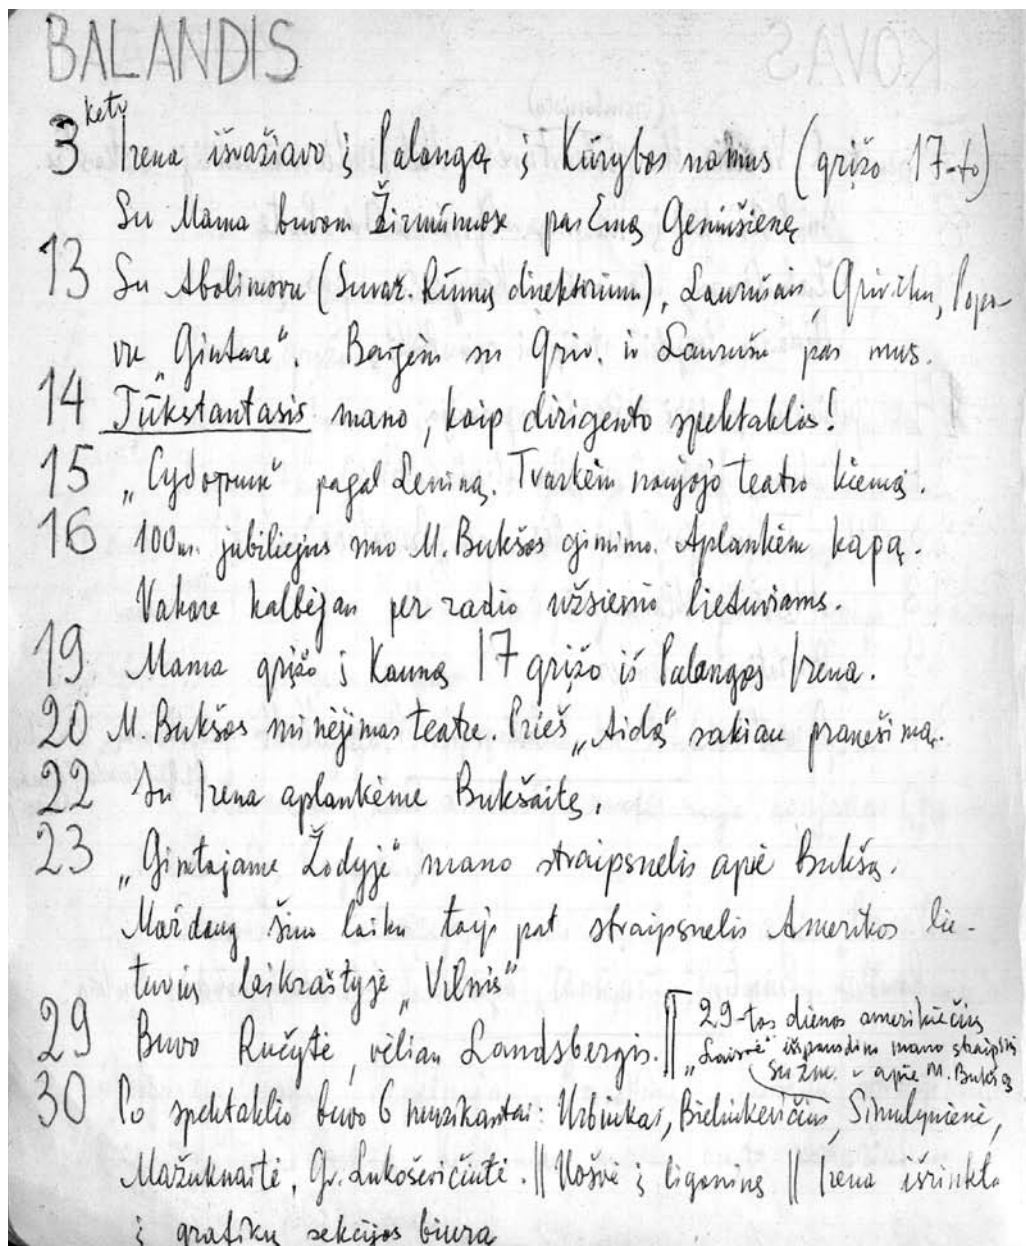 BALANDIS
3 ketv Irena išvažiavo į Palangą į Kūrybos namus (grįžo 17-to)
Su Mama buvom Žirmūnuose pas Emą Geniušienę
13 Su Abolimovu (Suvaž. Rūmų direktorium), Laurušais, Grivičku, Popo-
vu „Gintare“. Baigėm su Griv. ir Laurušu pas mus.
14 Tūkstantasis mano, kaip dirigento spektaklis!
15 pagal Leniną. Tvarkėm naujojo teatro kiemą.
16 100 m. jubiliejus nuo M. Bukšos gimimo. Aplankėm kapą.
Vakare kalbėjau per radio užsienio lietuviams.
19 Mama grįžo į Kauną 17 grįžo iš Palangos Irena.
20 M. Bukšos minėjimas teatre. Prieš „Aidą“ sakiau pranešimą.
22 Su Irena aplankėme Bukšaitę.
23 „Gimtajame Žodyje“ mano straipsnelis apie Bukšą.
Maždaug šiuo laiku taip pat straipsnelis Amerikos lie-
tuvių laikraštyje „Vilnis“
29 Buvo Ručytė, vėlian Landsbergis. || 29-tos dienos amerikiečių
„Laisvė“ išspausdino mano straipsnį
su žm. apie M. Bukšą
30 Po spektaklio buvo 6 muzikantai: Urbiukai, Bielinkevičius, Simulynienė,
Mažuknaitė, Gr. Lukoševičiutė. || į ligoninę || Irena išrinkta
į grafikų sekcijos biurą